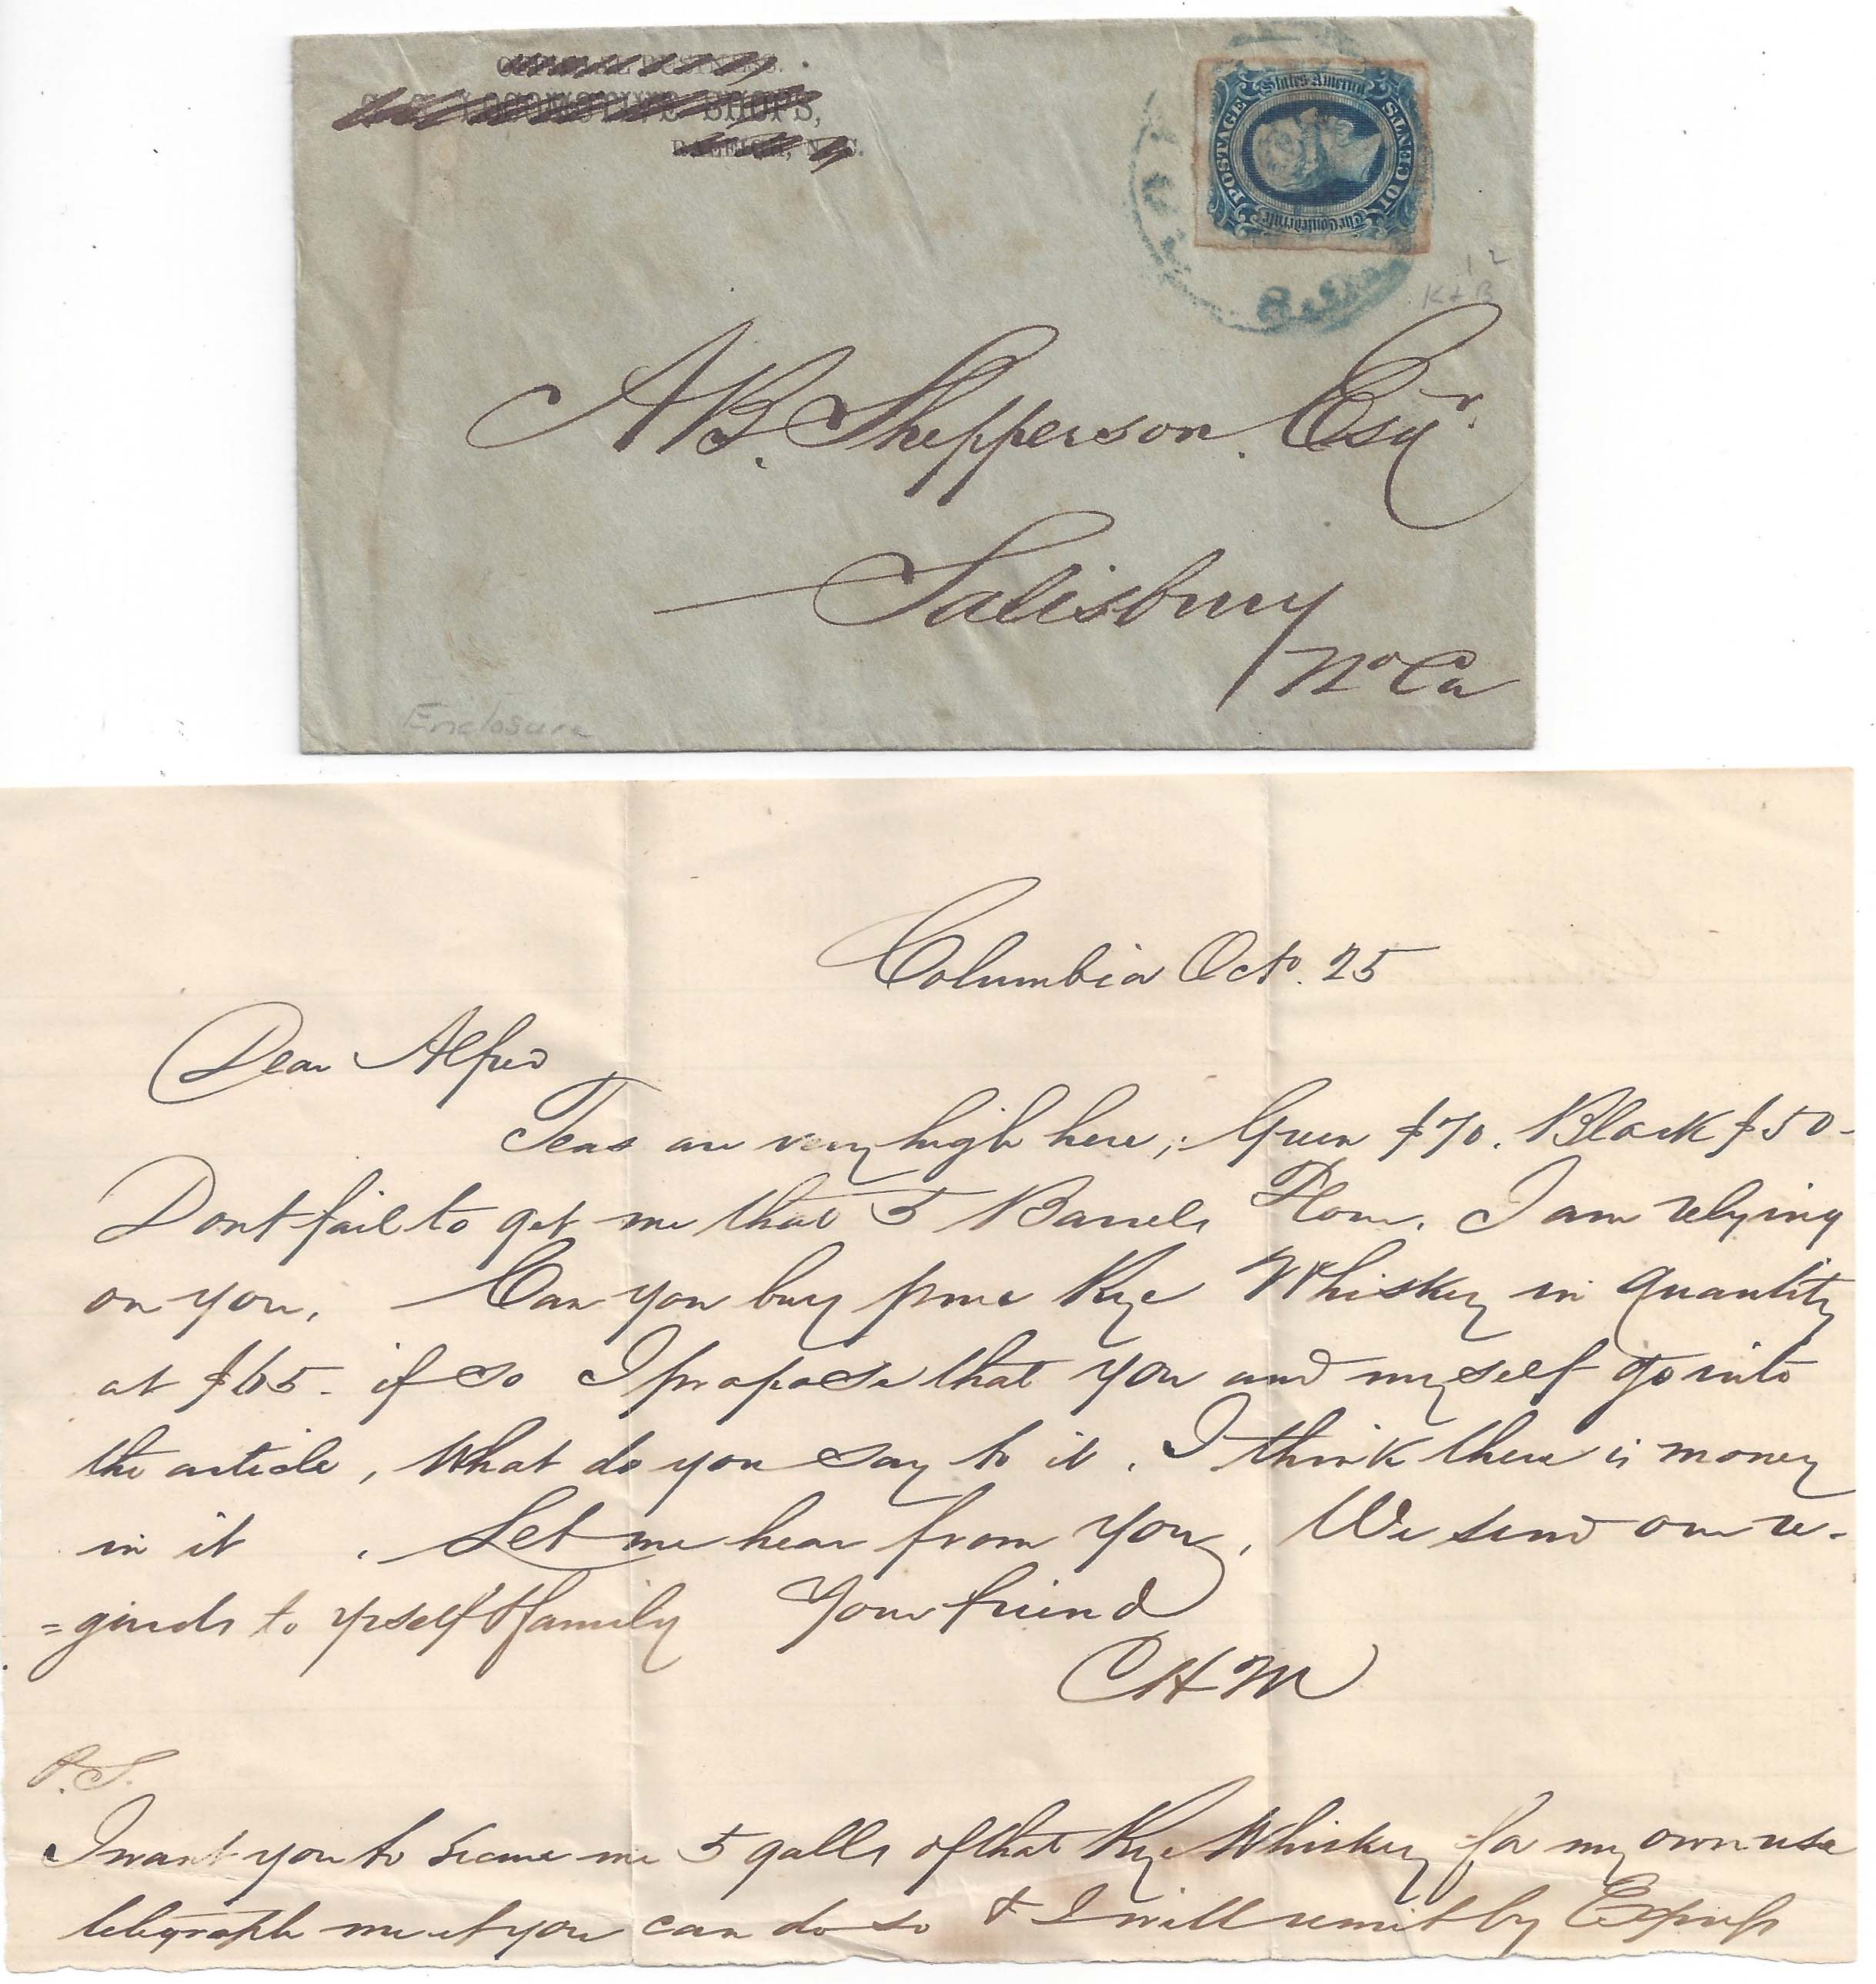 OFFICIAL BUSINESS.
LOCOMOTIVE SHOPS,
RALEIGH, N. C.
POSTAGE
States America
The Confederate
10 CENTS
12
K+B
A B. Shepperson. Esqr.
Salisbury
No Ca
Enclosure
Columbia Octo. 25
Dear Alfred
Teas are very high here; Green $70. Black $50-
Dont fail to get me that 5 Barrels Flour. I am relying
on you, Can you buy prime Rye Whiskey in quantity
at $65- if so I propose that you and myself go into
the article, What do you say to it. I think there is money
in it . Let me hear from you, We send our re-
=gards to yrself & family Your friend
CHM
P.S.
I want you to secure me 5 galls of that Rye Whiskey for my own use
telegraph me if you can do so & I will remit by Express